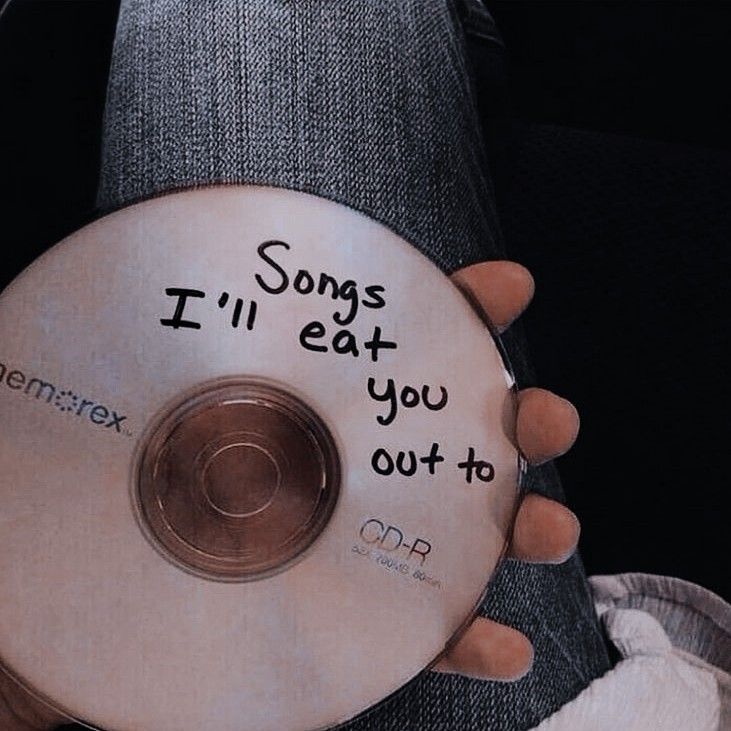 Songs
I'll eat
you
out to
memorex
CD-R
52x 700MB 80min